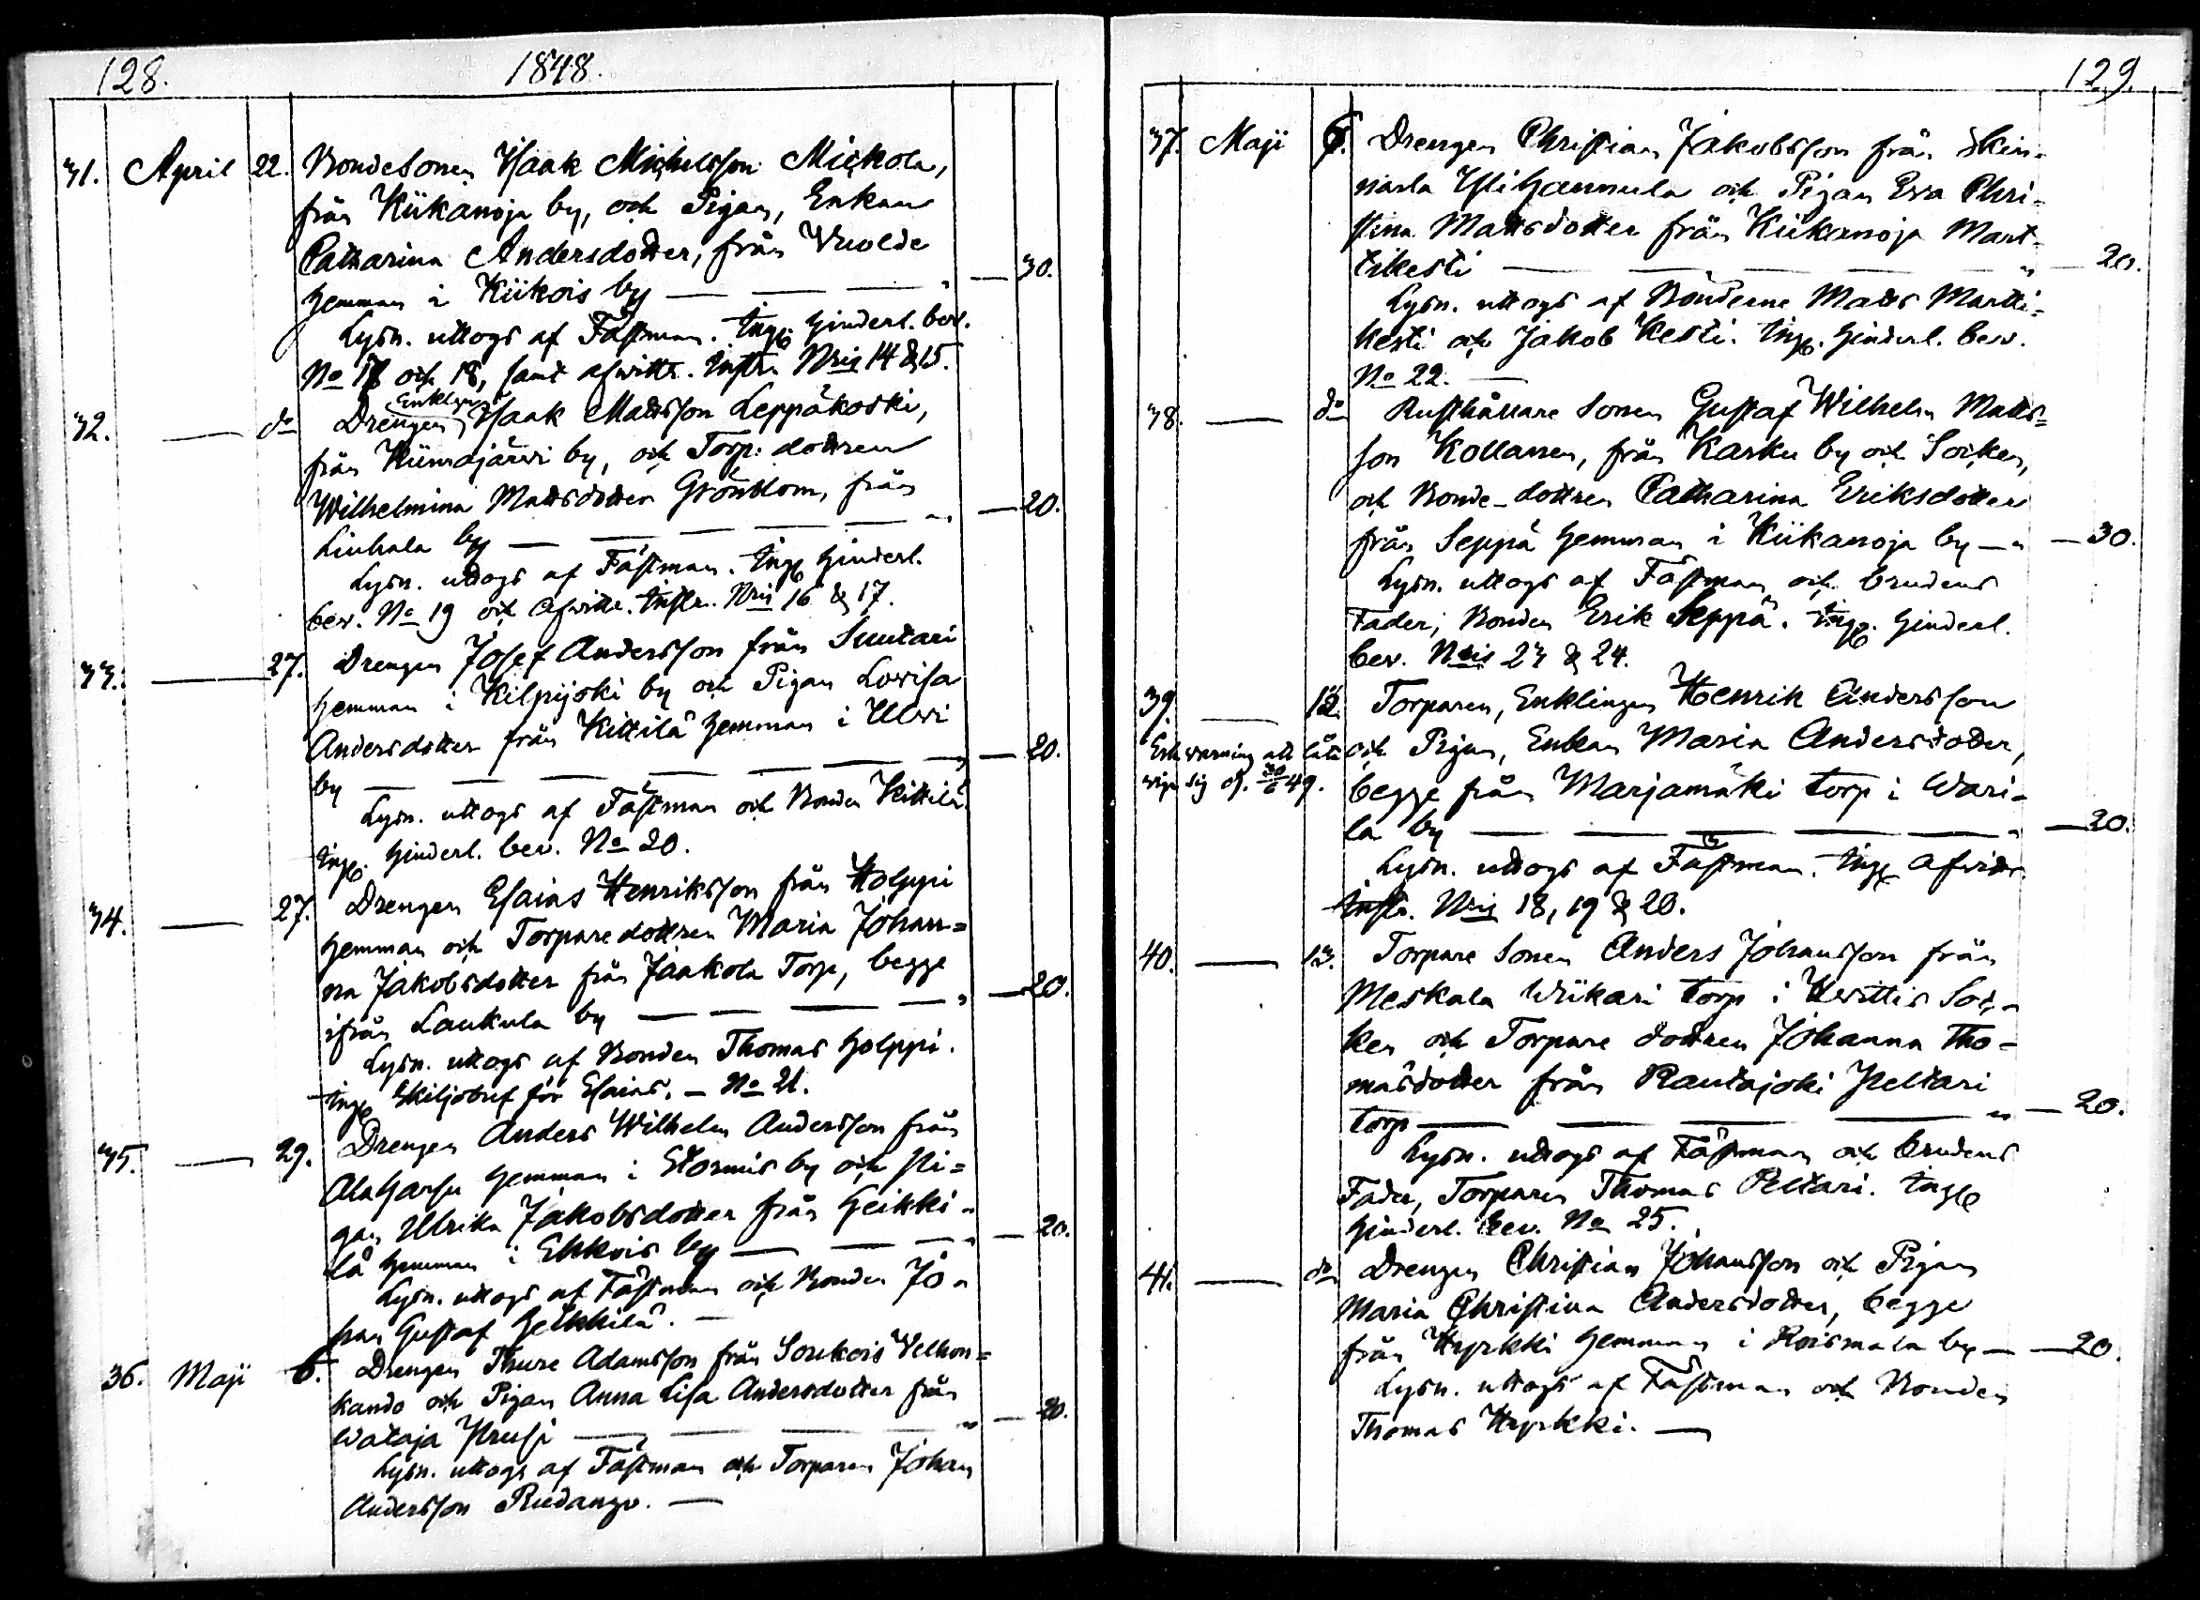 128.
1848.
31. April 22. Bondesonen Isaak Michelsson Mickola,
från Kiikanoja by, och Pigan, Enkan
Catharina Andersdotter, från Wuolde
hemman i Kiikois by — — — " — 30.
Lysn. uttogs af Fästman. Ingp. hinderl. bev.
No 17 och 18, samt afwittr. Instr. Nris 14 & 15.
Enklingen
32. — do Drengen Isaak Mattsson Leppäkoski,
från Kiimajärvi by, och Torp: dottren
Wilhelmina Mattsdotter Grönblom, från
Liuhala by — — — — — " — 20.
Lysn. uttogs af Fästman. Ingp hinderl.
bev. No 19 och Afwittr. Instr. Nris 16 & 17.
33. — 27. Drengen Josef Andersson från Suutari
hemman i Kilpijoki by och Pigan Lovisa
Andersdotter från Kittilä hemman i Illwi
by — — — — — " — 20.
Lysn. uttogs af Fästman och Bonden Kittilä.
Ingp. hinderl. bev. No 20.
34. — 27. Drengen Esaias Henriksson från Holppi
hemman och Torparedottren Maria Johan=
na Jakobsdotter från Jaakola Torp, begge
ifrån Laukula by — — — — " — 20.
Lysn. uttogs af Bonden Thomas Holppi.
Ingp Skiljobref för Esaias. — No 21.
35. — 29. Drengen Anders Wilhelm Andersson från
Alaharju hemman i Stormis by och Pi=
gan Ulrika Jakobsdotter från Heikki-
lä hemman i Ekkois by — — — " — 20.
Lysn. uttogs af Fästman och Bonden Jo-
han Gustaf Heikkilä. —
36. Maji 6. Drengen Thure Adamsson från Soukois Velhon=
kando och Pigan Anna Lisa Andersdotter från
Wataja Krusi — — — — " — 20.
Lysn. uttogs af Fästman och Torparen Johan
Andersson Riedango. —
129.
37. Maji 6. Drengen Christian Jakobsson från Skin-
narla Ylihannula och Pigan Eva Chri-
stina Mattsdotter från Kiikanoja Mart-
tikesti — — — — " — 20.
Lysn. uttogs af Bönderne Matts Martti-
kesti och Jakob Kesti. Ingp. hinderl. bev.
No 22. —
38. — do Rusthållare Sonen Gustaf Wilhelm Matts=
son Kollanen, från Karku by och Socken,
och Bonde-dottren Catharina Eriksdotter
från Seppä hemman i Kiikanoja by — " — 30.
Lysn. uttogs af Fästman och brudens
Fader, Bonden Erik Seppä. Ingp. hinderl.
bev. Nris 23 & 24.
39. — 12. Torparen, Enklingen Henrik Andersson
och Pigan, Enkan Maria Andersdotter,
Erh. varning att låta
viga sig d. 30/6 49.
begge från Marjamäki torp i Wari-
la by — — — — — " — 20.
Lysn. uttogs af Fästman. Ingp Afwittr.
Instr. Nris 18, 19 & 20.
40. — 13. Torpare Sonen Anders Johansson från
Meskala Wiikari torp i Hvittis Soc-
ken och Torpare dottren Johanna Tho-
masdotter från Rautajoki Peltari
torp — — — " — 20.
Lysn. uttogs af Fästman och brudens
Fader, Torparen Thomas Peltari. Ingp
hinderl. bev. No 25.
41. — do Drengen Christian Johansson och Pigan
Maria Christina Andersdotter, begge
från Hyrkki hemman i Roismala by — — 20.
Lysn. uttogs af Fästman och Bonden
Thomas Hyrkki. —